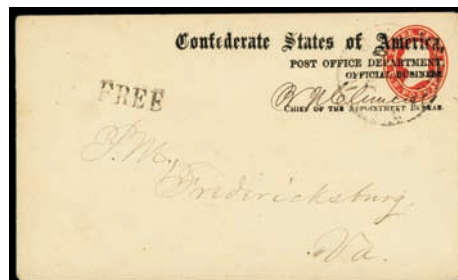 Confederate States of America,
POST OFFICE DEPARTMENT,
OFFICIAL BUSINESS
B. N. Clements
CHIEF OF THE APPOINTMENT BUREAU.
FREE
P.M.,
Fredericksburg,
Va.